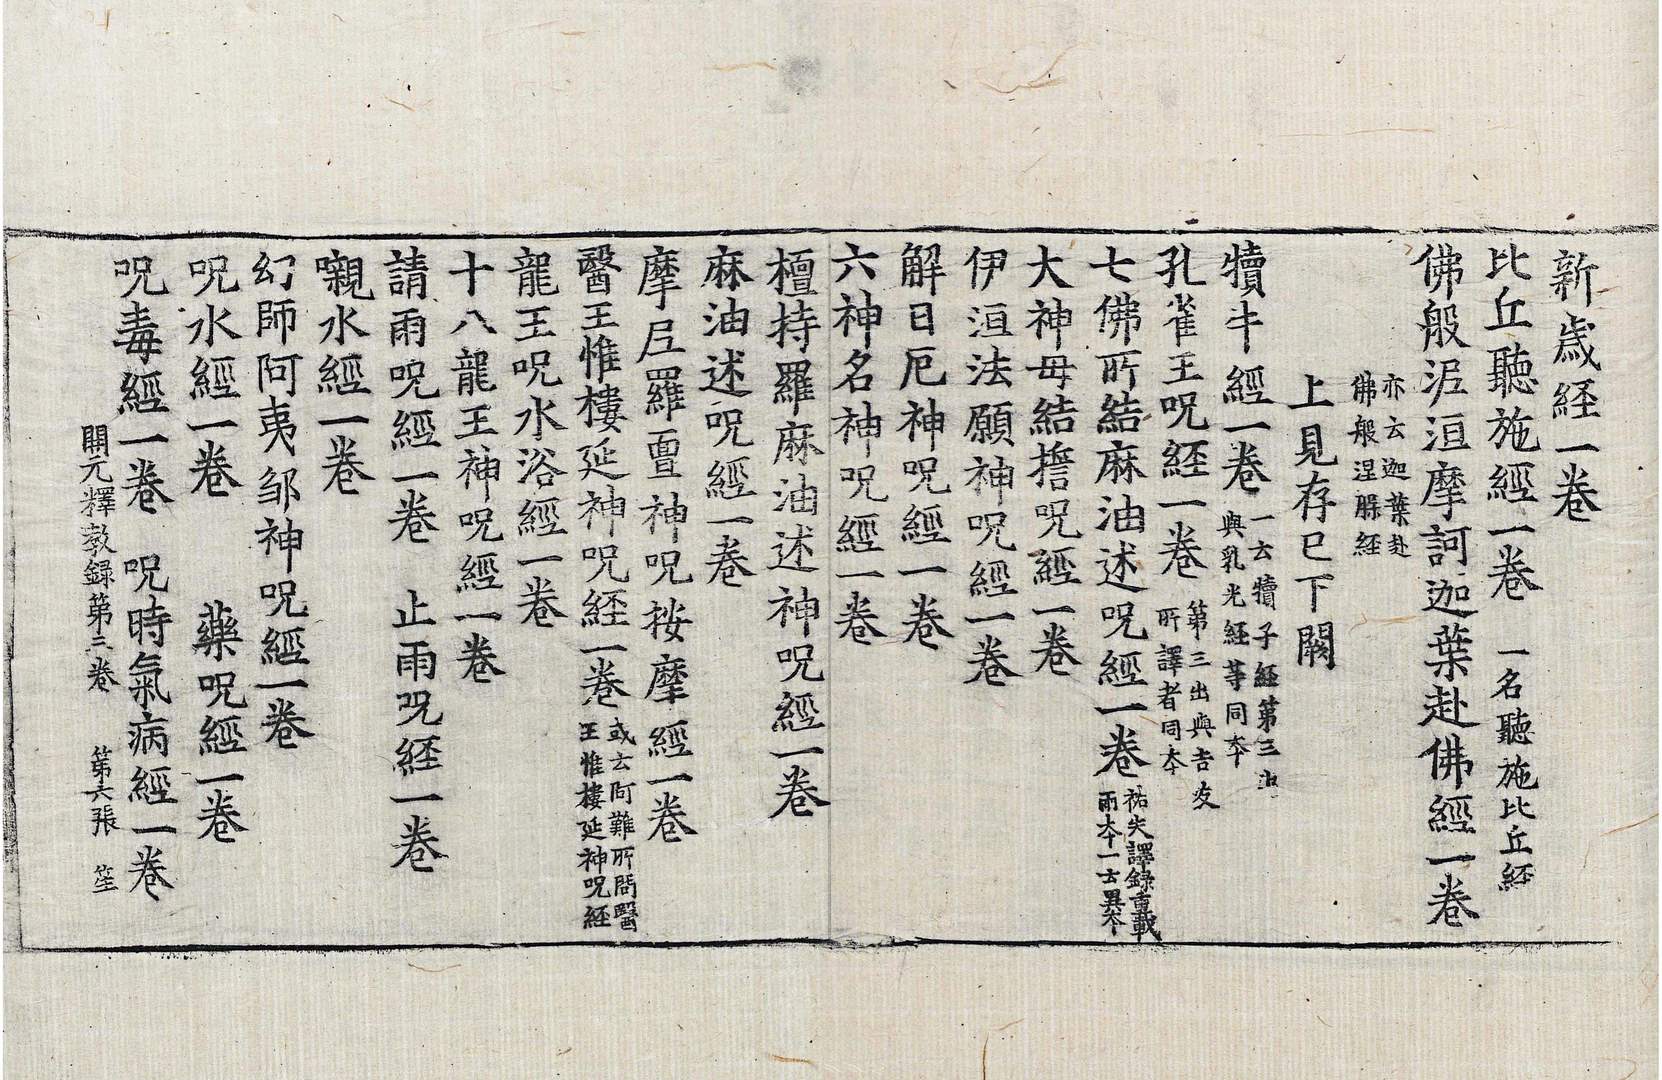 新歲経一卷
比丘聽施經一卷 一名聽施比丘経
佛般泥洹摩訶迦葉赴佛經一卷
亦云迦葉赴
佛般涅槃経
上見存已下闕
犢牛經一卷 一云犢子経第三出
與乳光経等同本
孔雀王呪経一卷 第三出與吉友
所譯者同本
七佛所結麻油述呪經一卷 祐失譯錄重載
兩本一云異本
大神母結擔呪經一卷
伊洹法願神呪經一卷
解日厄神呪經一卷
六神名神呪經一卷
檀持羅麻油述神呪經一卷
麻油述呪經一卷
摩尼羅亶神呪按摩經一卷
醫王惟樓延神呪経一卷 或云阿難所問醫
王惟樓延神呪経
龍王呪水浴經一卷
十八龍王神呪經一卷
請雨呪經一卷 止雨呪経一卷
嚫水經一卷
幻師阿夷邹神呪經一卷
呪水經一卷 藥呪經一卷
呪毒經一卷 呪時氣病經一卷
開元釋教録第三卷 第六張 笙